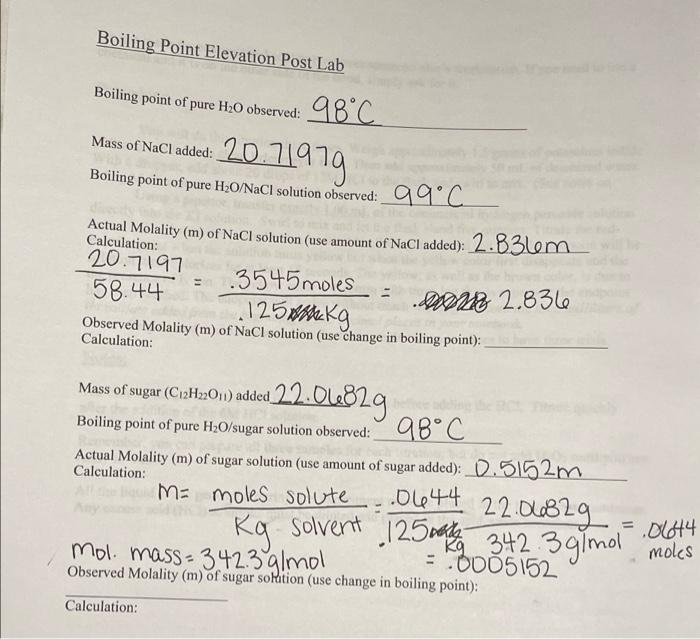 Boiling Point Elevation Post Lab
Boiling point of pure H₂O observed: 98°C
Mass of NaCl added: 20.7197g
Boiling point of pure H₂O/NaCl solution observed: 99°C
Actual Molality (m) of NaCl solution (use amount of NaCl added): 2.836m
Calculation:
20.7197
58.44 = .3545 moles
.125 Kg = 2.836
Observed Molality (m) of NaCl solution (use change in boiling point):
Calculation:
Mass of sugar (C₁₂H₂₂O₁₁) added 22.0682g
Boiling point of pure H₂O/sugar solution observed: 98°C
Actual Molality (m) of sugar solution (use amount of sugar added): 0.5152m
Calculation:
m= moles solute = .0644 22.0682g
Kg solvent .125 Kg 342.3g/mol = .0644 moles
mol. mass= 342.3g/mol = .0005152
Observed Molality (m) of sugar solution (use change in boiling point):
Calculation: